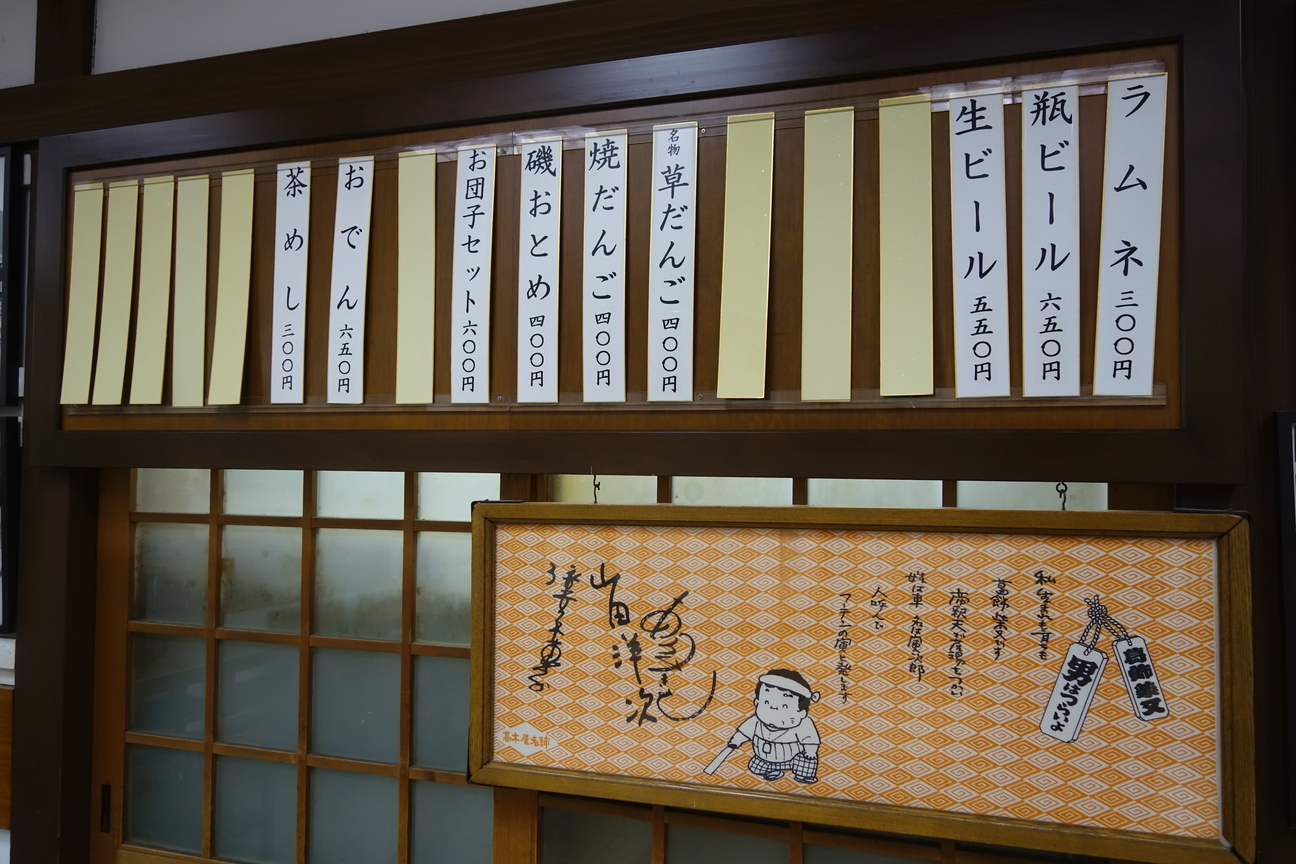 ラムネ 三〇〇円
瓶ビール 六五〇円
生ビール 五五〇円
名物 草だんご 四〇〇円
焼だんご 四〇〇円
磯おとめ 四〇〇円
お団子セット 六〇〇円
おでん 六五〇円
茶めし 三〇〇円
葛飾柴又
男はつらいよ
私生まれも育ちも
葛飾柴又です
姓は車 名は寅次郎
人呼んで
フーテンの寅と発します
山田洋次
髙木屋老舗